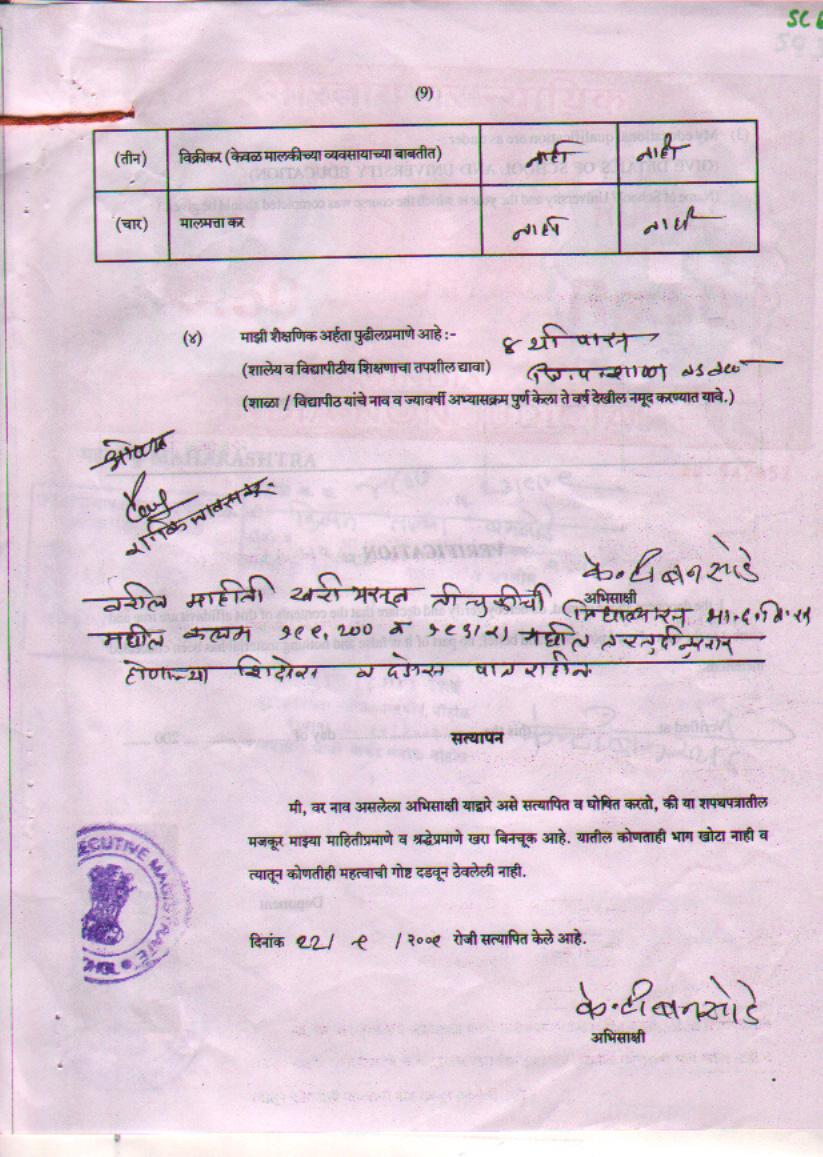 SC
(9)
(तीन) विक्रीकर (केवळ मालकीच्या व्यवसायाच्या बाबतीत) नाही नाही
(चार) मालमत्ता कर नाही नाही
(४) माझी शैक्षणिक अर्हता पुढीलप्रमाणे आहे :- ४ थी पास
(शालेय व विद्यापीठीय शिक्षणाचा तपशील द्यावा) जि.प. शाळा
(शाळा / विद्यापीठ यांचे नाव व ज्यावर्षी अभ्यासक्रम पुर्ण केला ते वर्ष देखील नमूद करण्यात यावे.)
के.टी बनसोडे
अभिसाक्षी
वरील माहीती खरी असून
मधील कलम १९९, २०० व १९३(२) मधील तरतुदीनुसार
होणाऱ्या शिक्षेस व दंडास पात्र राहील
सत्यापन
मी, वर नाव असलेला अभिसाक्षी याद्वारे असे सत्यापित व घोषित करतो, की या शपथपत्रातील
मजकूर माझ्या माहितीप्रमाणे व श्रद्धेप्रमाणे खरा बिनचूक आहे. यातील कोणताही भाग खोटा नाही व
त्यातून कोणतीही महत्वाची गोष्ट दडवून ठेवलेली नाही.
EXECUTIVE MAGISTRATE
दिनांक २२/ ९ /२००९ रोजी सत्यापित केले आहे.
के.टी बनसोडे
अभिसाक्षी